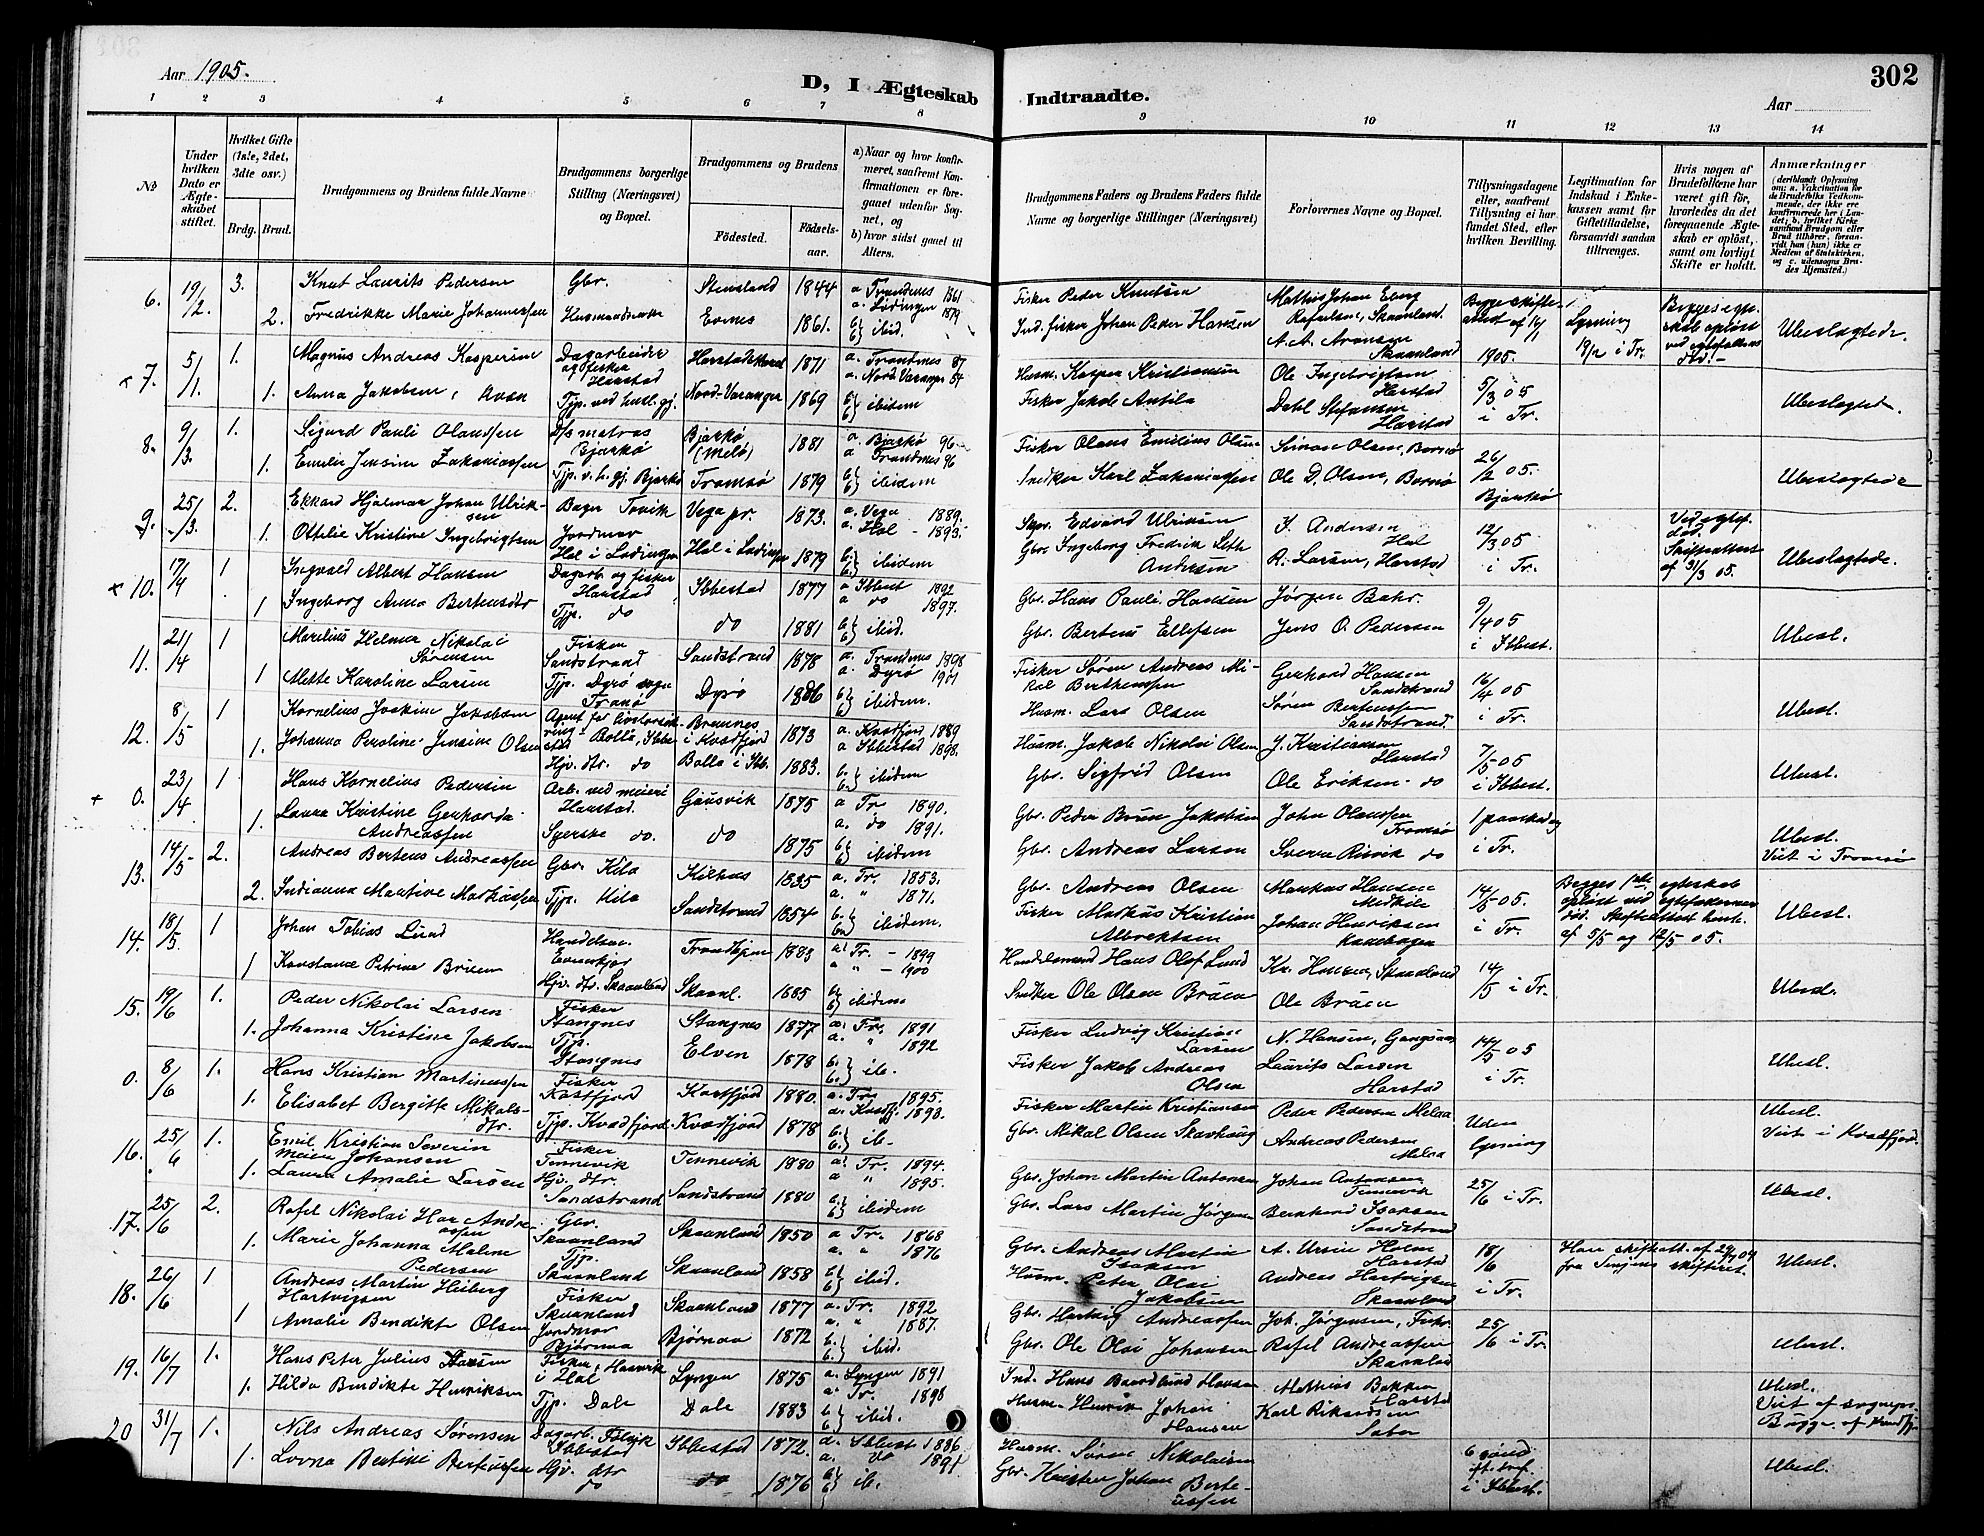 Aar 1905.
D, I Ægteskab Indtraadte.
302
Aar
1 2 3 4 5 6 7 8 9 10 11 12 13 14
No
Under hvilken Dato er Ægteskabet stiftet.
Hvilket Gifte (1ste, 2det, 3die osv.)
Brdg. Brud.
Brudgommens og Brudens fulde Navne
Brudgommens borgerlige Stilling (Næringsvei) og Bopæl.
Brudgommens og Brudens
Fødested.
Fødselsaar.
a) Naar og hvor konfirmeret, saafremt Konfirmationen er foregaaet udenfor Sognet, og
b) hvor sidst gaaet til Alters.
Brudgommens Faders og Brudens Faders fulde Navne og borgerlige Stillinger (Næringsvei)
Forlovernes Navne og Bopæl.
Tillysningsdagene eller, saafremt Tillysning ei har fundet Sted, efter hvilken Bevilling.
Legitimation for Indskud i Enkekassen samt for Giftetilladelse, forsaavidt saadan tiltrænges.
Hvis nogen af Brudefolkene har været gift før, hvorledes da det foregaaende Ægteskab er opløst, samt om lovligt Skifte er holdt.
Anmærkninger
(deriblandt Oplysning om: a. Vakcination for de Brudefolks Vedkommende, der ikke ere konfirmerede her i Landet; b. hvilket Kirkesamfund Brudgom eller Brud tilhører, forsaavidt han (hun) ikke er Medlem af Statskirken, og c. udensogns Brudes Hjemsted.)
6. 19/2 3. Knut Laurits Pedersen Gbr. Stensland 1844 a Trondenes 1861 Fisker Peder Knutsen Mathis Johan Eberg
2. Fredrikke Marie Johannessen Evenes 1861. a. Lødingen 1879 b) ibid. Ind. fisker Johan Peder Hansen A. A. Aronsen Skaanland 1905. Lysning 19/2 i Tr. Ubeslægtede.
x 7. 5/1. 1. Magnus Andreas Kaspersen Dagarbeider og fisker Harstad 1871 a. Trondenes 87 Husm. Kasper Kristiansen Ole Ingebrigtsen Harstad 5/3 05 i Tr.
1. Anna Jakobsen, Tjp. ved hutl.gj. Nord-Varanger 1869 b) ibidem Fisker Jakob Antila Dahl Stefansen Harstad Ubeslægtet.
8. 9/3. 1. Sigurd Pauli Olaussen D/s matros Bjarkø Bjarkø (Melø) 1881 a. Bjarkø 96 Fisker Olaus Emilius Olsen Simon Olsen, 26/2 05. Bjarkø
1. Emilie Jensine Zakariassen Tjp. v. h. gj. Bjarkø Tromsø 1879 a Trondenes 96 b) ibidem Snedker Karl Zakariassen Ole D. Olsen, Ubeslægtede
9. 25/3. 2. Ekkard Hjalmar Johan Ulriksen Bager Tovik Vega pr. 1873. a. Vega 1889. Edvard Ulriksen K. Andersen Hol 12/3 05 i Tr.
1. Ottilie Kristine Ingebrigtsen Jordmor Hol i Lødingen Hol i Lødingen 1879 a. Hol - 1893. b) ibidem Gbr. Ingeborg Fredrik Seth Andersen R. Larsen, Harstad Skifteattest af 31/3 05. Ubeslægtede.
x 10. 17/4 1 Ingvald Albert Hansen Dagarb. og fisker Harstad Ibbestad 1877 a Ibbest 1892 Gbr. Hans Pauli Hansen Jørgen Bahr. 9/4 05 i Ibbest.
1 Ingeborg Anna Bertensdtr Tjp. do do 1881 a do 1897. b) ibid. Gbr. Berteus Ellefsen Jens O. Pedersen Ubesl.
11. 21/4 1 Marelius Helmer Nikolai Sørensen Fisker Sandstrand Sandstrand 1878 a. Trondenes 1898 Fisker Søren Andreas Mikal Berthensen Gerhard Hansen Sandstrand 16/4 05 i Tr.
1 Mette Karoline Larsen Tjp. Dyrø sogn Tranø Dyrø 1886 a. Dyrø 1901 b) ibidem. Husm. Lars Olsen Søren Berteussen Sandstrand. Ubesl.
12. 8/5 1 Kornelius Joakim Jakobsen Agent for Bolla, Ibbe. i Kvæfjord 1873 a. Kvæfjord 1889 Husm. Jakob Nikolai Olsen J. Kristiansen Harstad 7/5 05 i Ibbest.
1. Johanna Peroline Jensine Olsen Hjv. dtr. do Bolla i Ibb. 1883. a Ibbestad 1898. b) ibidem Gbr. Sigfrid Olsen Ole Eriksen do Ubesl.
+ 0. 23/4 1 Hans Kornelius Pedersen Arb. ved meieri Harstad. Gausvik 1875 a Tr 1890. Gbr. Peder Brun Jakobsen John Olaussen Tromsø 1 paaskedag i Tr.
1. Laura Kristine Gerharda Andreassen Syerske do. do 1875 a. do 1891. b) ibidem Gbr. Andreas Larsen Sverre Risvik do Ubesl. Viet i Tromsø
13. 14/5 2. Andreas Berteus Andreassen Gbr. Kila Kilhus 1835 a. Tr. 1853. Gbr. Andreas Olsen Markus Hansen Medkila 14/5 05. i Tr.
2. Indianna Martine Markussen Tjp. Kila Sandstrand 1854 a. " 1871. b) ibidem. Fisker Markus Kristian Albrektsen Johan Henriksen Kanebogen Begges ægteskab opløst ved ægtefællernes død. Skifteattest af 5/5 og 12/5 05. Ubesl.
14. 18/5. 1 Johan Tobias Lund Handelsm. Evenskjer Trondhjem 1883 a. Tr. - 1899 Handelsmand Hans Olof Lund Kr. Hansen, Skaanland 14/5 i Tr.
1 Konstanse Petrine Bruen Hjv. dtr. Skaanland Skaanl. 1885 a " - 1900 b) ibidem Snedker Ole Olsen Bruen Ole Bruen Ubesl.
15. 19/6 1. Peder Nikolai Larsen Fisker Stangnes Stangnes 1877 a. Tr. 1891 Fisker Ludvig Kristian Larsen N. Hansen, Gangsaas 14/5 05 i Tr.
1. Johanna Kristine Jakobsen Tjp. Stangnes Elven 1878 a. " 1892 b) ib. Fisker Jakob Andreas Olsen Laurits Larsen Harstad Ubesl.
0. 8/6 1. Hans Kristian Martinussen Fisker Kastfjord Kastfjord 1880. a. Tr. 1895. Fisker Martin Kristiansen Peder Pedersen Melaa Uden lysning
1. Elisabet Bergitte Mikalsdtr. Tjp. Kvæfjord. Kvæfjord 1878 a. Kvæfj. 1893. b) ib. Gbr. Mikal Olsen Skavhaug Andreas Pedersen Melaa Ubesl. Viet i Kvæfjord.
16. 25/6 1. Emil Kristian Severin Meier Johansen Fisker Tennevik Tennevik 1880 a. Tr. 1894. Gbr. Johan Martin Antonsen Johan Antonsen Tennevik 25/6 i Tr.
1. Laura Amalie Larsen Hjv. dtr. Sandstrand Sandstrand 1880 a " 1895. b) ibidem Gbr. Lars Martin Jørgensen Bernhard Isaksen Sandstrand Ubesl.
17. 25/6 2. Rafel Nikolai Andreassen Gbr. Skaanland Skaanland 1850 a Tr. 1868 Gbr. Andreas Martin Isaksen A. Harstad 18/6 i Tr.
1. Marie Johanna Malene Pedersen Tjp. Skaanland Skaanland 1858 a. " 1876 b) ibid. Husm. Peter Olai Jakobsen Andreas Hartvigsen Skaanland fra Senjens skifteret. Ubesl.
18. 26/6 1 Andreas Martin Heiberg Hartvigsen Fisker Skaanland Skaanland 1877 a. Tr. 1892 Gbr. Hartvig Andreassen Joh. Jørgensen, 25/6 i Tr.
1 Amalie Bendikte Olsen Jordmor Bjørnaa Bjørnaa 1872 a. " 1887. b) ibid. Gbr. Ole Olai Johansen Rafel Andreassen Skaanland Ubesl.
19. 16/7 1. Hans Peter Julius Hansen Fisker, i Hol Lyngen 1875 a. Lyngen 1891 Ind. Hans Hansen Mathias Bakken Harstad
1. Hilda Bendikte Henriksen Tjp. Dale Dale 1883 a. Tr. 1898 b) ibid. Husm. Henrik Johan Hansen Karl Rikardsen Ubesl. Viet af sognepr.
20 31/7 1. Nils Andreas Sørensen Dagarb. Ibbestad Ibbestad 1872. a. Ibbest 1886 Husm. Søren Nikolaisen i Ibbest.
1. Lovna Bertine Berteussen Hjv. dtr do do 1876 a. do 1891 b) ib. Gbr. Kristen Johan Berteussen Ubesl.